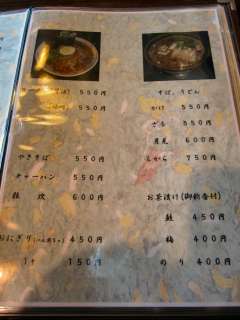 550円
550円
やきそば 550円
チャーハン 550円
雑炊 600円
おにぎり 450円
1ケ 150円
そば、うどん
かけ 550円
ざる 550円
月見 600円
から 750円
お茶漬け(御新香付)
鮭 450円
梅 400円
のり 400円